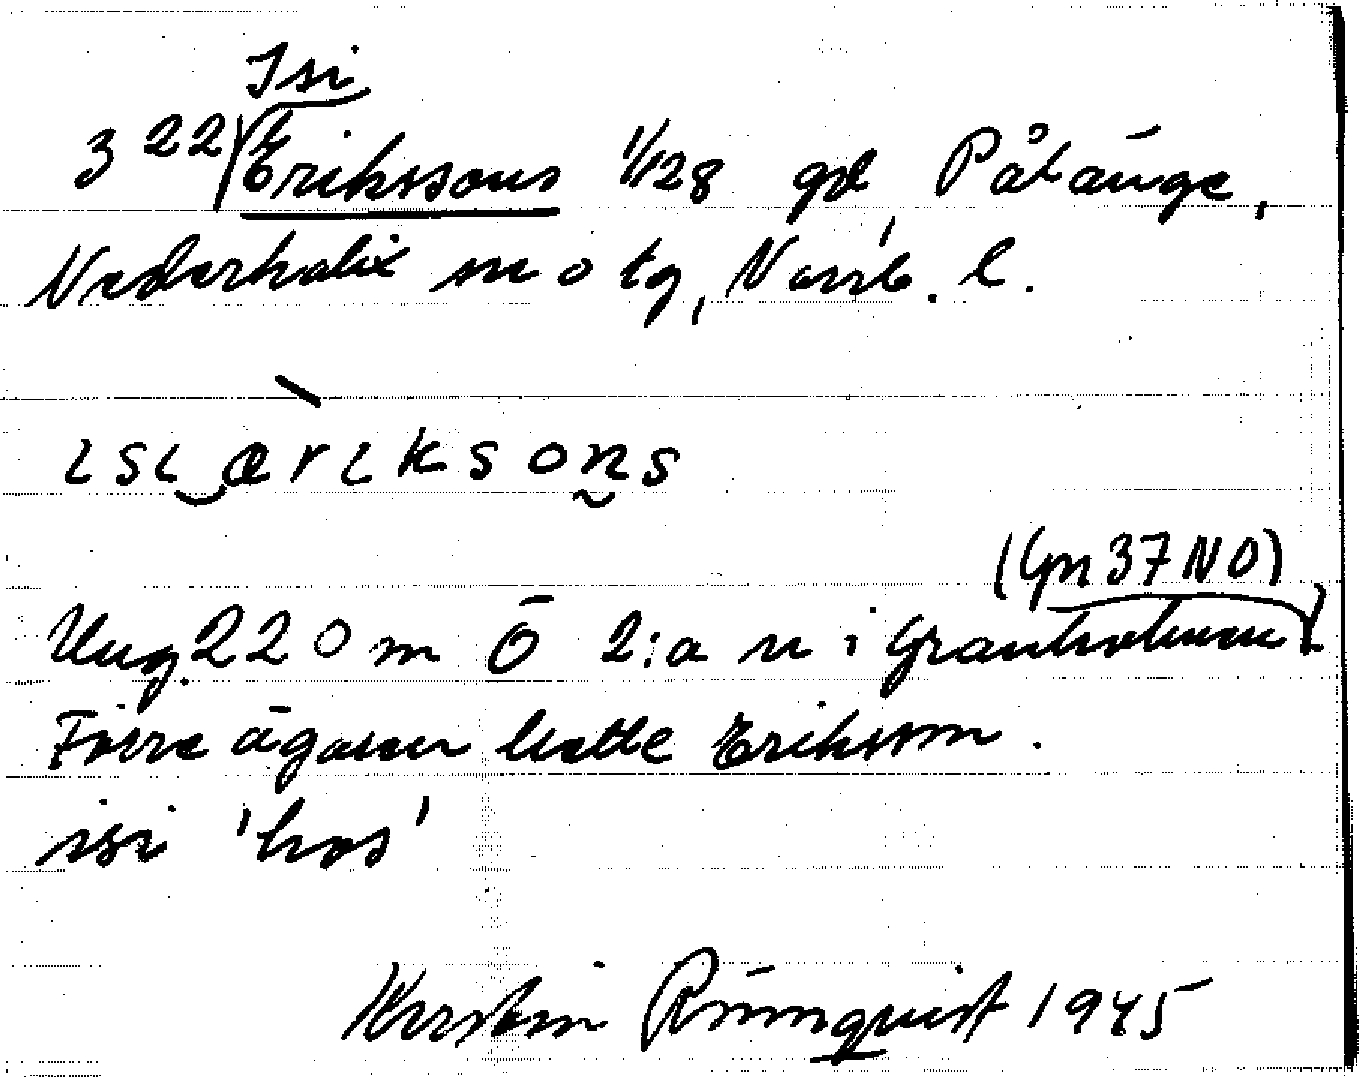 Isi
3 22 Erikssons 1/128 gd Pålänge,
Nederkalix sn o tg, Norrb. l.
ɩsɩ‿ærɩksons
Ung. 220 m Ö 2:a n i Grantholmen
(Gn 37 NO)
Förre ägaren hette Eriksson.
isi 'hos'
Kerstin Rönnqvist 1945